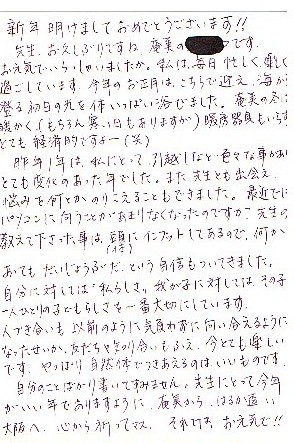 新年明けましておめでとうございます!!
先生、おひさしぶりですね。奄美の
です。
お元気でいらっしゃいましたか。私は、毎日忙しく、楽しく
過ごしています。今年のお正月は、こちらで迎え、海から
登る初日の光を体いっぱい浴びました。奄美の冬は
暖かく(もちろん寒い日もありますが)暖房器具もいらず
とても経済的ですよー(笑)
昨年1年は、私にとって、引越しなど色々な事があり
とても変化のあった年でした。また先生とも出会え、
悩みを何とかのりこえることもできました。最近では
パソコンに向うことがあまりなくなったのですが、先生の
教えて下さった事は、頭にインプットしてあるので、何か
(体)
あっても だいじょうぶだ、という自信もついてきました。
自分に対しては"私らしさ"、我が子に対しては、その子
一人ひとりの子どもらしさを一番大切にしています。
人づき合いも 以前のように気負わずに向い合えるように
なったせいか、友だちも 合いもふえ、今とても楽しい
です。やっぱり自然体でつきあえるのは、いいものです。
自分のことばかり書いてすみません。先生にとって今年
がいい年でありますように、奄美から、はるか遠い
大阪へ、心から祈ってマス。それでは、お元気で!!